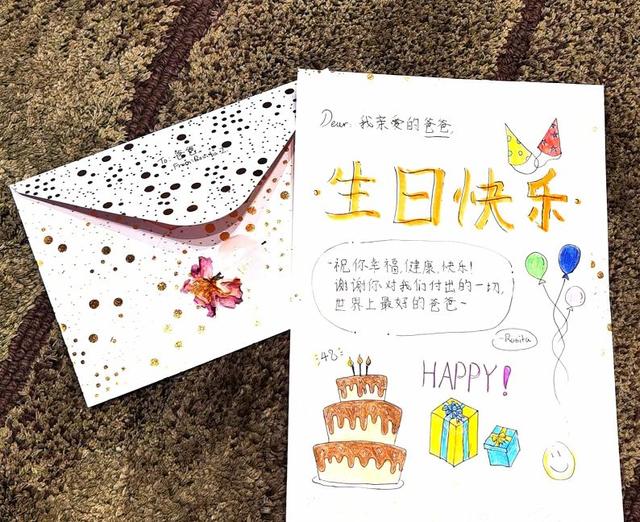 To: 爸爸
From: Rosita
Dear: 我亲爱的爸爸,
生日快乐
~祝你幸福,健康,快乐!
谢谢你对我们付出的一切,
世界上最好的爸爸~
-Rosita
48
HAPPY!